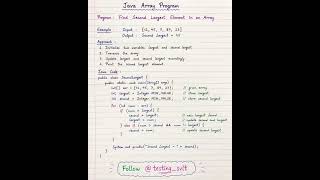 Java Array Program
Program : Find Second Largest Element in an Array
Example Input : {12, 45, 7, 89, 23}
Output : Second Largest = 45
Approach :
1. Initialize two variables largest and second largest
2. Traverse the array
3. Update largest and second largest accordingly
4. Print the second largest element
Java Code :
public class SecondLargest {
public static void main(String[] args) {
int[] arr = {12, 45, 7, 89, 23}; // given array
int largest = Integer.MIN_VALUE; // store largest
int second = Integer.MIN_VALUE; // store second largest
for (int num : arr) {
if (num > largest) {
second = largest; // new second largest found
largest = num; // update largest
} else if (num > second && num != largest) {
second = num; // update second largest
}
}
System.out.println("Second Largest = " + second);
}
}
Follow @testing_svlt